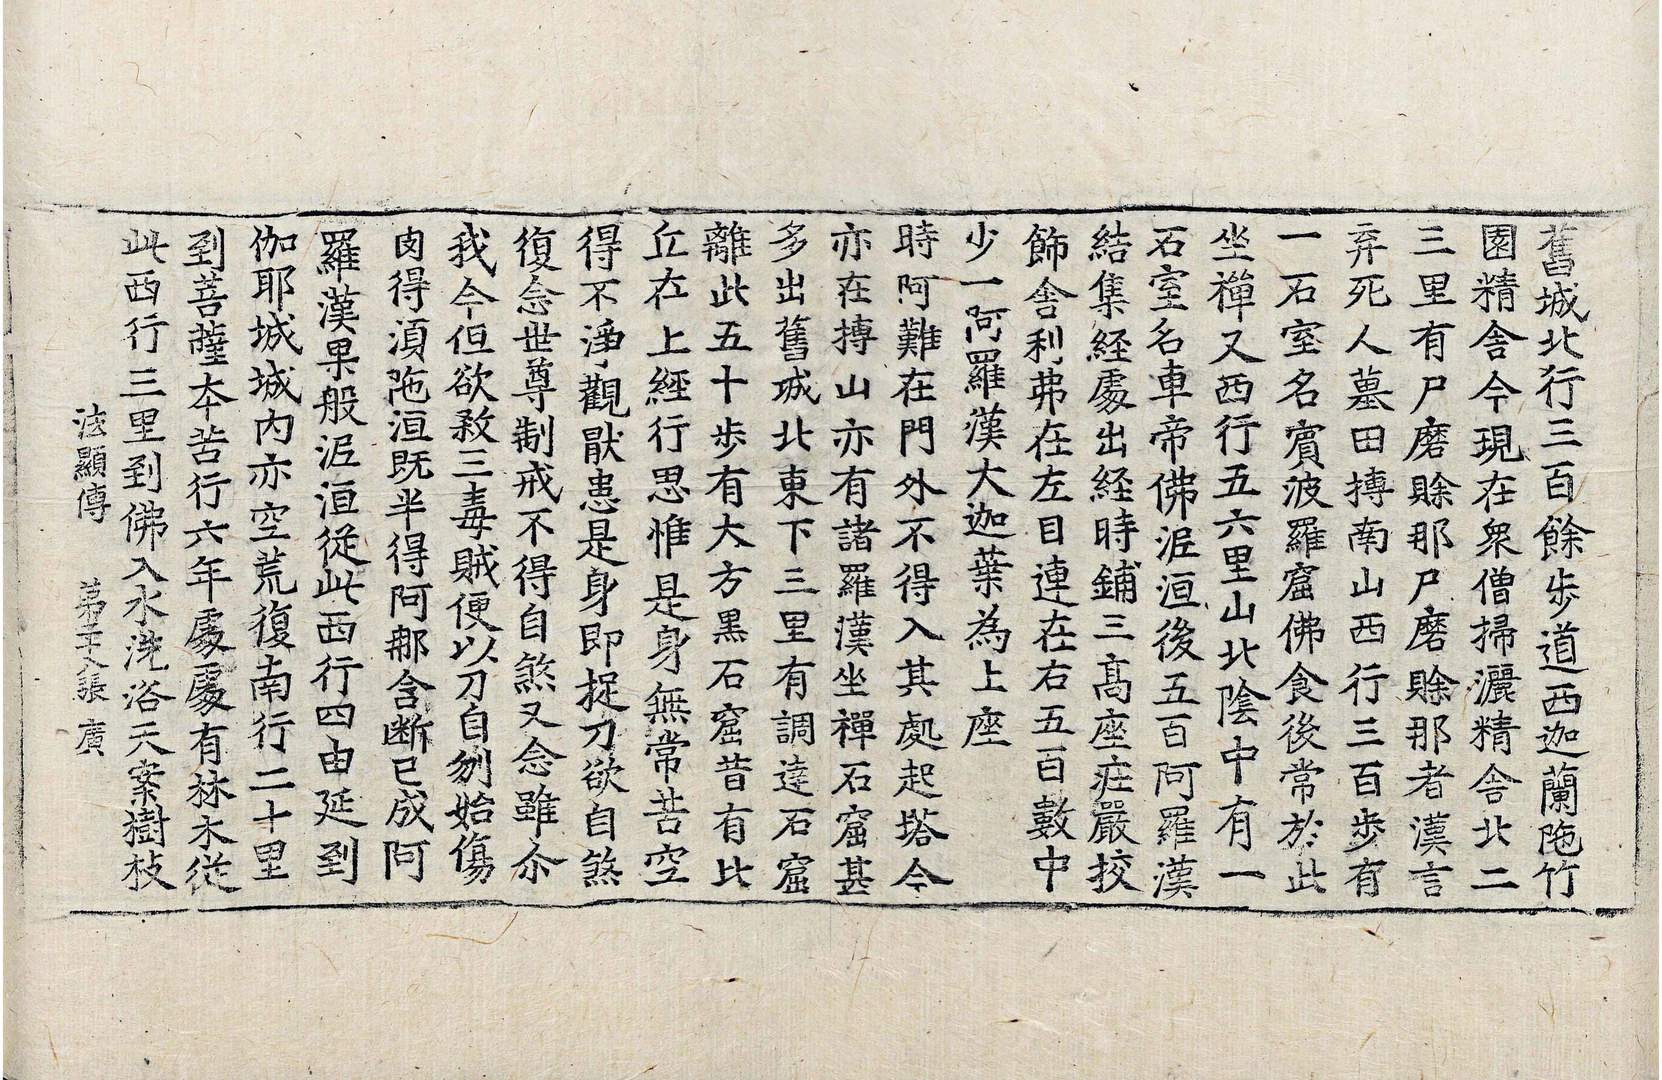 舊城北行三百餘步道西迦蘭陁竹
園精舎今現在衆僧掃灑精舎北二
三里有尸磨賒那尸磨賒那者漢言
弃死人墓田搏南山西行三百步有
一石室名賔波羅窟佛食後常於此
坐禪又西行五六里山北陰中有一
石室名車帝佛泥洹後五百阿羅漢
結集経處出経時鋪三髙座莊嚴挍
飾舎利弗在左目連在右五百數中
少一阿羅漢大迦葉為上座
時阿難在門外不得入其處起塔今
亦在搏山亦有諸羅漢坐禪石窟甚
多出舊城北東下三里有調達石窟
離此五十步有大方黒石窟昔有比
丘在上經行思惟是身無常苦空
得不淨觀猒患是身即捉刀欲自煞
復念世尊制戒不得自煞又念雖尒
我今但欲煞三毒賊便以刀自刎始傷
肉得湏陁洹既半得阿那含断已成阿
羅漢果般泥洹從此西行四由延到
伽耶城城内亦空荒復南行二十里
到菩薩本苦行六年處處有林木從
此西行三里到佛入水洗浴天案樹枝
法顯傳 第二十八張 廣